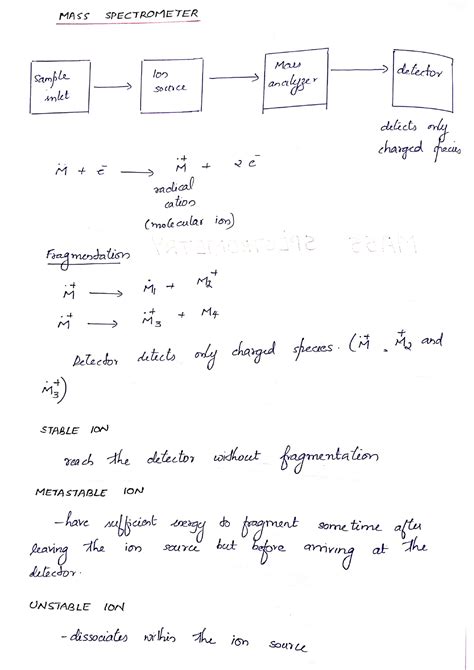 MASS SPECTROMETER
Sample inlet → Ion source → Mass analyzer → detector
detects only
charged species
M̈ + e⁻ → Ṁ⁺ + 2 e⁻
radical
cation
(molecular ion)
Fragmentation
Ṁ⁺ → Ṁ₁ + M₂⁺
Ṁ⁺ → Ṁ₃⁺ + M₄
Detector detects only charged species. (Ṁ⁺, M⁺₂ and
Ṁ₃⁺)
STABLE ION
reach the detector without fragmentation
METASTABLE ION
-have sufficient energy to fragment sometime after
leaving the ion source but before arriving at the
detector.
UNSTABLE ION
- dissociates within the ion source